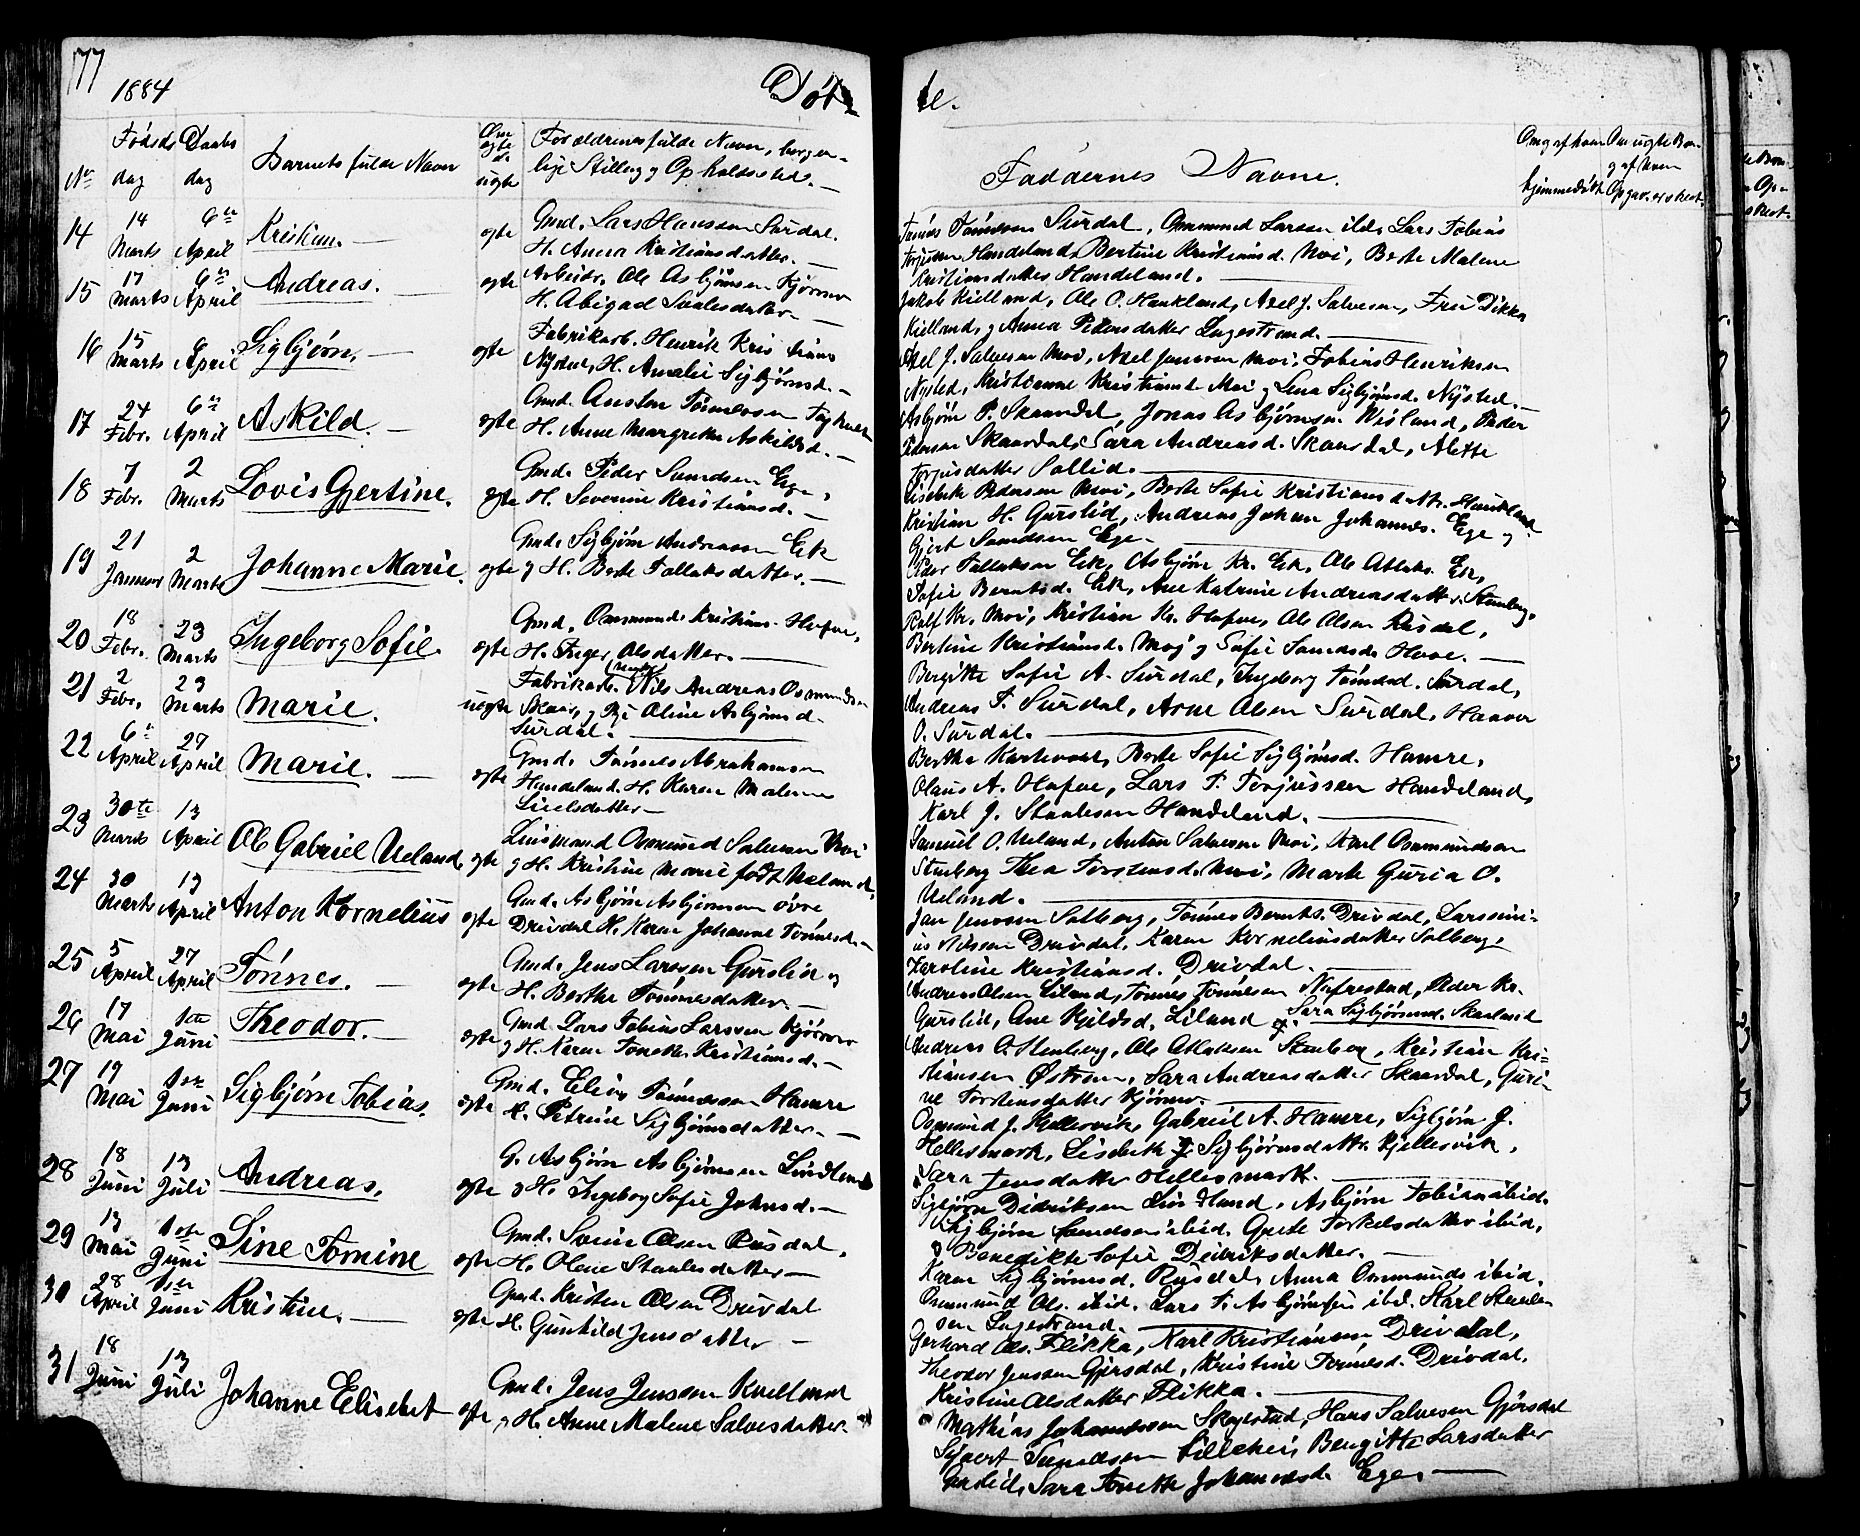 77
1884
Døbte.
No
Fødsdag
Daabsdag
Barnets fulde Navn
Om ægte de uægte
Forældrenes fulde Navn, borgerlige Stilling og Opholdssted. —
Faddernes Navne.
Om og af hvem hjemmedøbt
Om uægte Barn og af hvem Opgav. er skeet.
14
14 Marts
6te April
Kristian. —
egte
Gmd. Lars Hansson Surdal.
H. Anna Kristiansdatter. —
Tønnes Tønnesen Surdal, Ommund Larsen ibd, Lars Tobias
Torjussen Handeland, Bertine Kristiansd. Moi, Berte Malene
Kristiansdatter Handeland. —
15
17 Marts
6te April
Andreas. —
egte
Arbeidr. Ole Asbjørnsen Kjørmo
H. Abigael Svalesdatter —
Jakob Kielland, Ole O. Haukland, Axel J. Salvesen, Fru Dikka
Kielland, og Anna Petersdatter Lagestrand. —
16
15 Marts
6 April
Sigbjørn. —
egte
Fabrikarb. Henrik Kristians
Nysted, H. Amalie Sigbjørnsd. —
Axel J. Salvesen Moi, Axel Jansson Moi, Tobias Henriksen
Nysted, Kristianne Kristiansd. Moi og Lina Sigbjørnsd. Nysted. —
17
24 Febr.
6te April
Askild. —
egte
Gmd. Tønnessen
H. Anne Margrethe Askildsd. —
Asbjørn P. Skaardal, Jonas Asbjørnsen Wisland, Peder
Pedersen Skaardal, Sara Andreasd. Skaardal, Alette
Torjusdatter Sollid. —
18
7 Febr.
2 Marts
Lovis Gjertine.
egte
Gmd. Peder Samdsen Ege,
H. Severine Kristiansd. —
Lisebete Pedersen Moi, Berte Sofie Kristiansdattr. Haukland,
Kristian H. Gurslid, Andreas Johan Johannes. Ege og
Gjert Samdsen Ege. —
19
21 Januar
2 Marts
Johanne Marie.
egte
Gmd. Sigbjørn Andreassen Eik
og H. Berte Tollaksdatter. —
Peder Tollaksen Eik, Asbjørn Kr. Eik, Ole Atlaks. Eik,
Sofie Berntsd. Eik, Ane Katrine Andreasdattr. Stenberg.
20
18 Febr.
23 Marts
Ingeborg Sofie.
egte
Gmd. Ommund Kristians. Hofve,
H. Inger Olsdatter. —
Rolf Kr. Moi, Kristian Kr. Hofve, Ole Olsen Rusdal,
Bertine Kristiansd. Moj og Sofie Samdsd. Hove. —
21
2 Febr.
23 Marts
Marie.
uegte
Fabrikarb. Nils Andreas Osmundsen
Skaar, og Pige Oline Asbjørnsd.
Surdal. —
Bergitte Sofie A. Surdal, Ingeborg Tønnesd. Surdal,
Andreas T. Surdal, Arne Olsen Surdal, Hanna
O. Surdal. —
22
6te April
27 April
Marie. —
egte
Gmd. Tønnes Abrahamsen
Handeland. H. Karen Malene
—
Berthe Berte Sofie Sigbjørnsd. Hamre,
Olaus A. Hofve, Lars T. Torjussen Handeland,
Karl J. Staalesen Handeland. —
23
30te Marts
13 April
Ole Gabriel Ueland
egte
Lensmand Osmund Salvesen Moi
og H. Kristine Marie født Ueland.
Samuel O. Ueland, Anton Salvesen Moi, Karl Ommundsen
Stenberg Thea Torstensd. Moi, Marte Guria O.
Ueland. —
24
30 Marts
13 April
Anton Kornelius
egte
Gmd. Asbjørn Asbjørnsen øvre
Drivdal H. Karen Johanne Tønnesd. —
Jan Jensson Solberg, Tønnes Bernts. Drivdal, Larssini-
us Nilssen Drivdal, Karen Korneliusdatter Solberg,
Karoline Kristiansd. Drivdal. —
25
5 April
27 April
Tønnes. —
egte
Gmd. Jens Larssen Gurslid og
H. Berthe Tønnesdatter. —
Andreas Olsen Liland, Tønnes Tønnesen Nufrestad, Peder Kr.
Gurslid, Ane Kjeldsd. Liland og Sara Sigbjørnsd. Skarland
26
17 Mai
1ste Juni
Theodor. —
egte
Gmd. Lars Tobias Larssen Kjørmo
og H. Karen Tonette Kristiansd. —
Andreas O. Stenberg, Ole Atlaksen Stenberg, Kristian Kri-
stiansen Østrem, Sara Andreasdatter Skaardal, Guri-
ne Torstensdatter Kjørmo. —
27
19 Mai
1ste Juni
Sigbjørn Tobias.
egte
Gmd. Elias Tønnessen Hamre
H. Petrine Sigbjørnsdatter. —
Osmund J. Kjellesvik, Gabriel A. Hamre, Sigbjørn J.
Hellesmark, Lisebeth J. Sigbjørnsdattr. Kjellesvik,
Sara Jensdatter Hellesmark. —
28
18 Juni
13 Juli
Andreas.
egte
G. Asbjørn Asbjørnsen Lindland
og H. Ingeborg Sofie Johnsd. —
Sigbjørn Didriksen Lindland, Asbjørn Tobiasen ibid.
Sigbjørn Samdsen ibid. Grete Torkelsdatter ibid,
og Benedikte Sofie Deidriksdatter. —
29
13 Mai
1ste Juni
Sine Tomine
egte
Gmd. Søren Olsen Rusdal,
H. Olene Staalesdatter —
Karen Sigbjørnsd. Rusdal, Anna Ommunds ibid.
Ommund Ols. ibid. Lars T. Asbjørnsen ibd. Karl Staale-
sen Lagestrand. —
30
28 April
1ste Juni
Kristine. —
egte
Gmd. Kristen Olsen Drivdal
H. Gunhild Jensdatter —
Gerhard Ols. Flikka, Karl Kristiansen Drivdal,
Theodor Jensson Gjersdal, Kristine Tønnesd. Drivdal,
Kristine Olsdatter Flikka. —
31
18 Juni
13 Juli
Johanne Elisebet
egte
Gmd. Jens Jensson
og H. Anne Malene Salvesdatter.
Mathias Johannessen Skogestad, Hans Salvesen Gjersdal
Sivert Samdsen Lillehei, Bergitte Larsdatter
Gurslid, Sara Tonette Johannesd. Ege. —